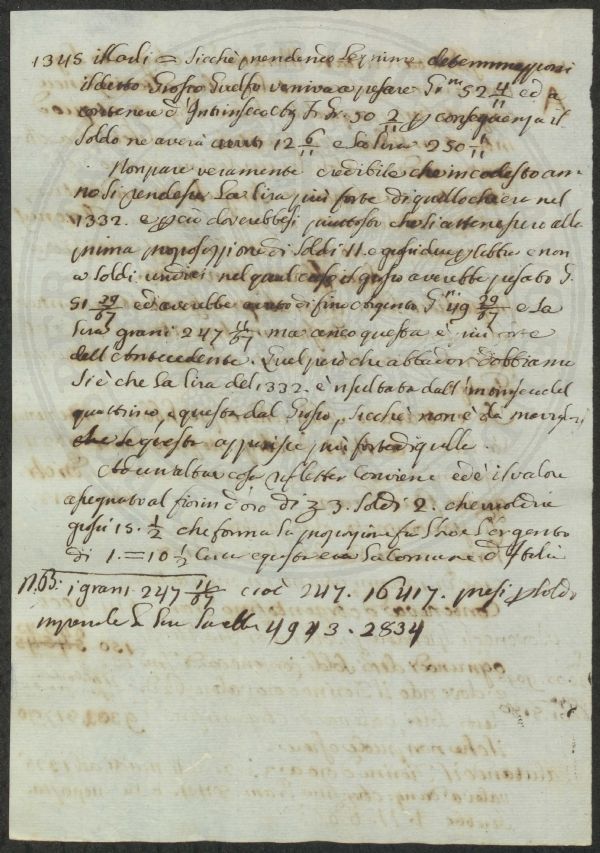 1345 illodi = Sicchè prendendo le prime determinazioni
il detto Grosso Guelfo veniva a pesare Gr.ni 52 4/11 ed a
contenere d'Intrinseco Gr. 50 2/11 p conseguenza il
Soldo ne averà 12 6/11 e la lira 250
Non pare veramente credibile che in codesto an-
no si rendesse la lira più forte di quello ch'era nel
1332. e p ciò doverebbesi piuttosto che si attenessero alla
prima proposizione di Soldi 11. e grossi due p libbra e non
a Soldi undici nel qual caso il grosso averebbe pesato G.
51 29/67 ed averebbe avuto di fino argento G.ni 49 29/67 e la
lira grani 247 11/67 ma anco questa è più forte
dell'Antecedente. Quel però che abbiamo
si è che la lira del 1332. è risultata dall'intrinseco del
quattrino, e questa dal Grosso, Sicchè non è da
che questa apparisce più forte di quella.
Ad un'altra cosa rifletter conviene ed è il valore
assegnato al fiorin d'oro di 3. Soldi 2. che
grossi 15. 1/2 che forma la proporzione fra l'oro e l'argento
di 1. = 10 1/2 questa era la comune d'Italia
N.B: i grani 247 11/67 cioè 247. 16417. presi p Soldi
4943. 2834